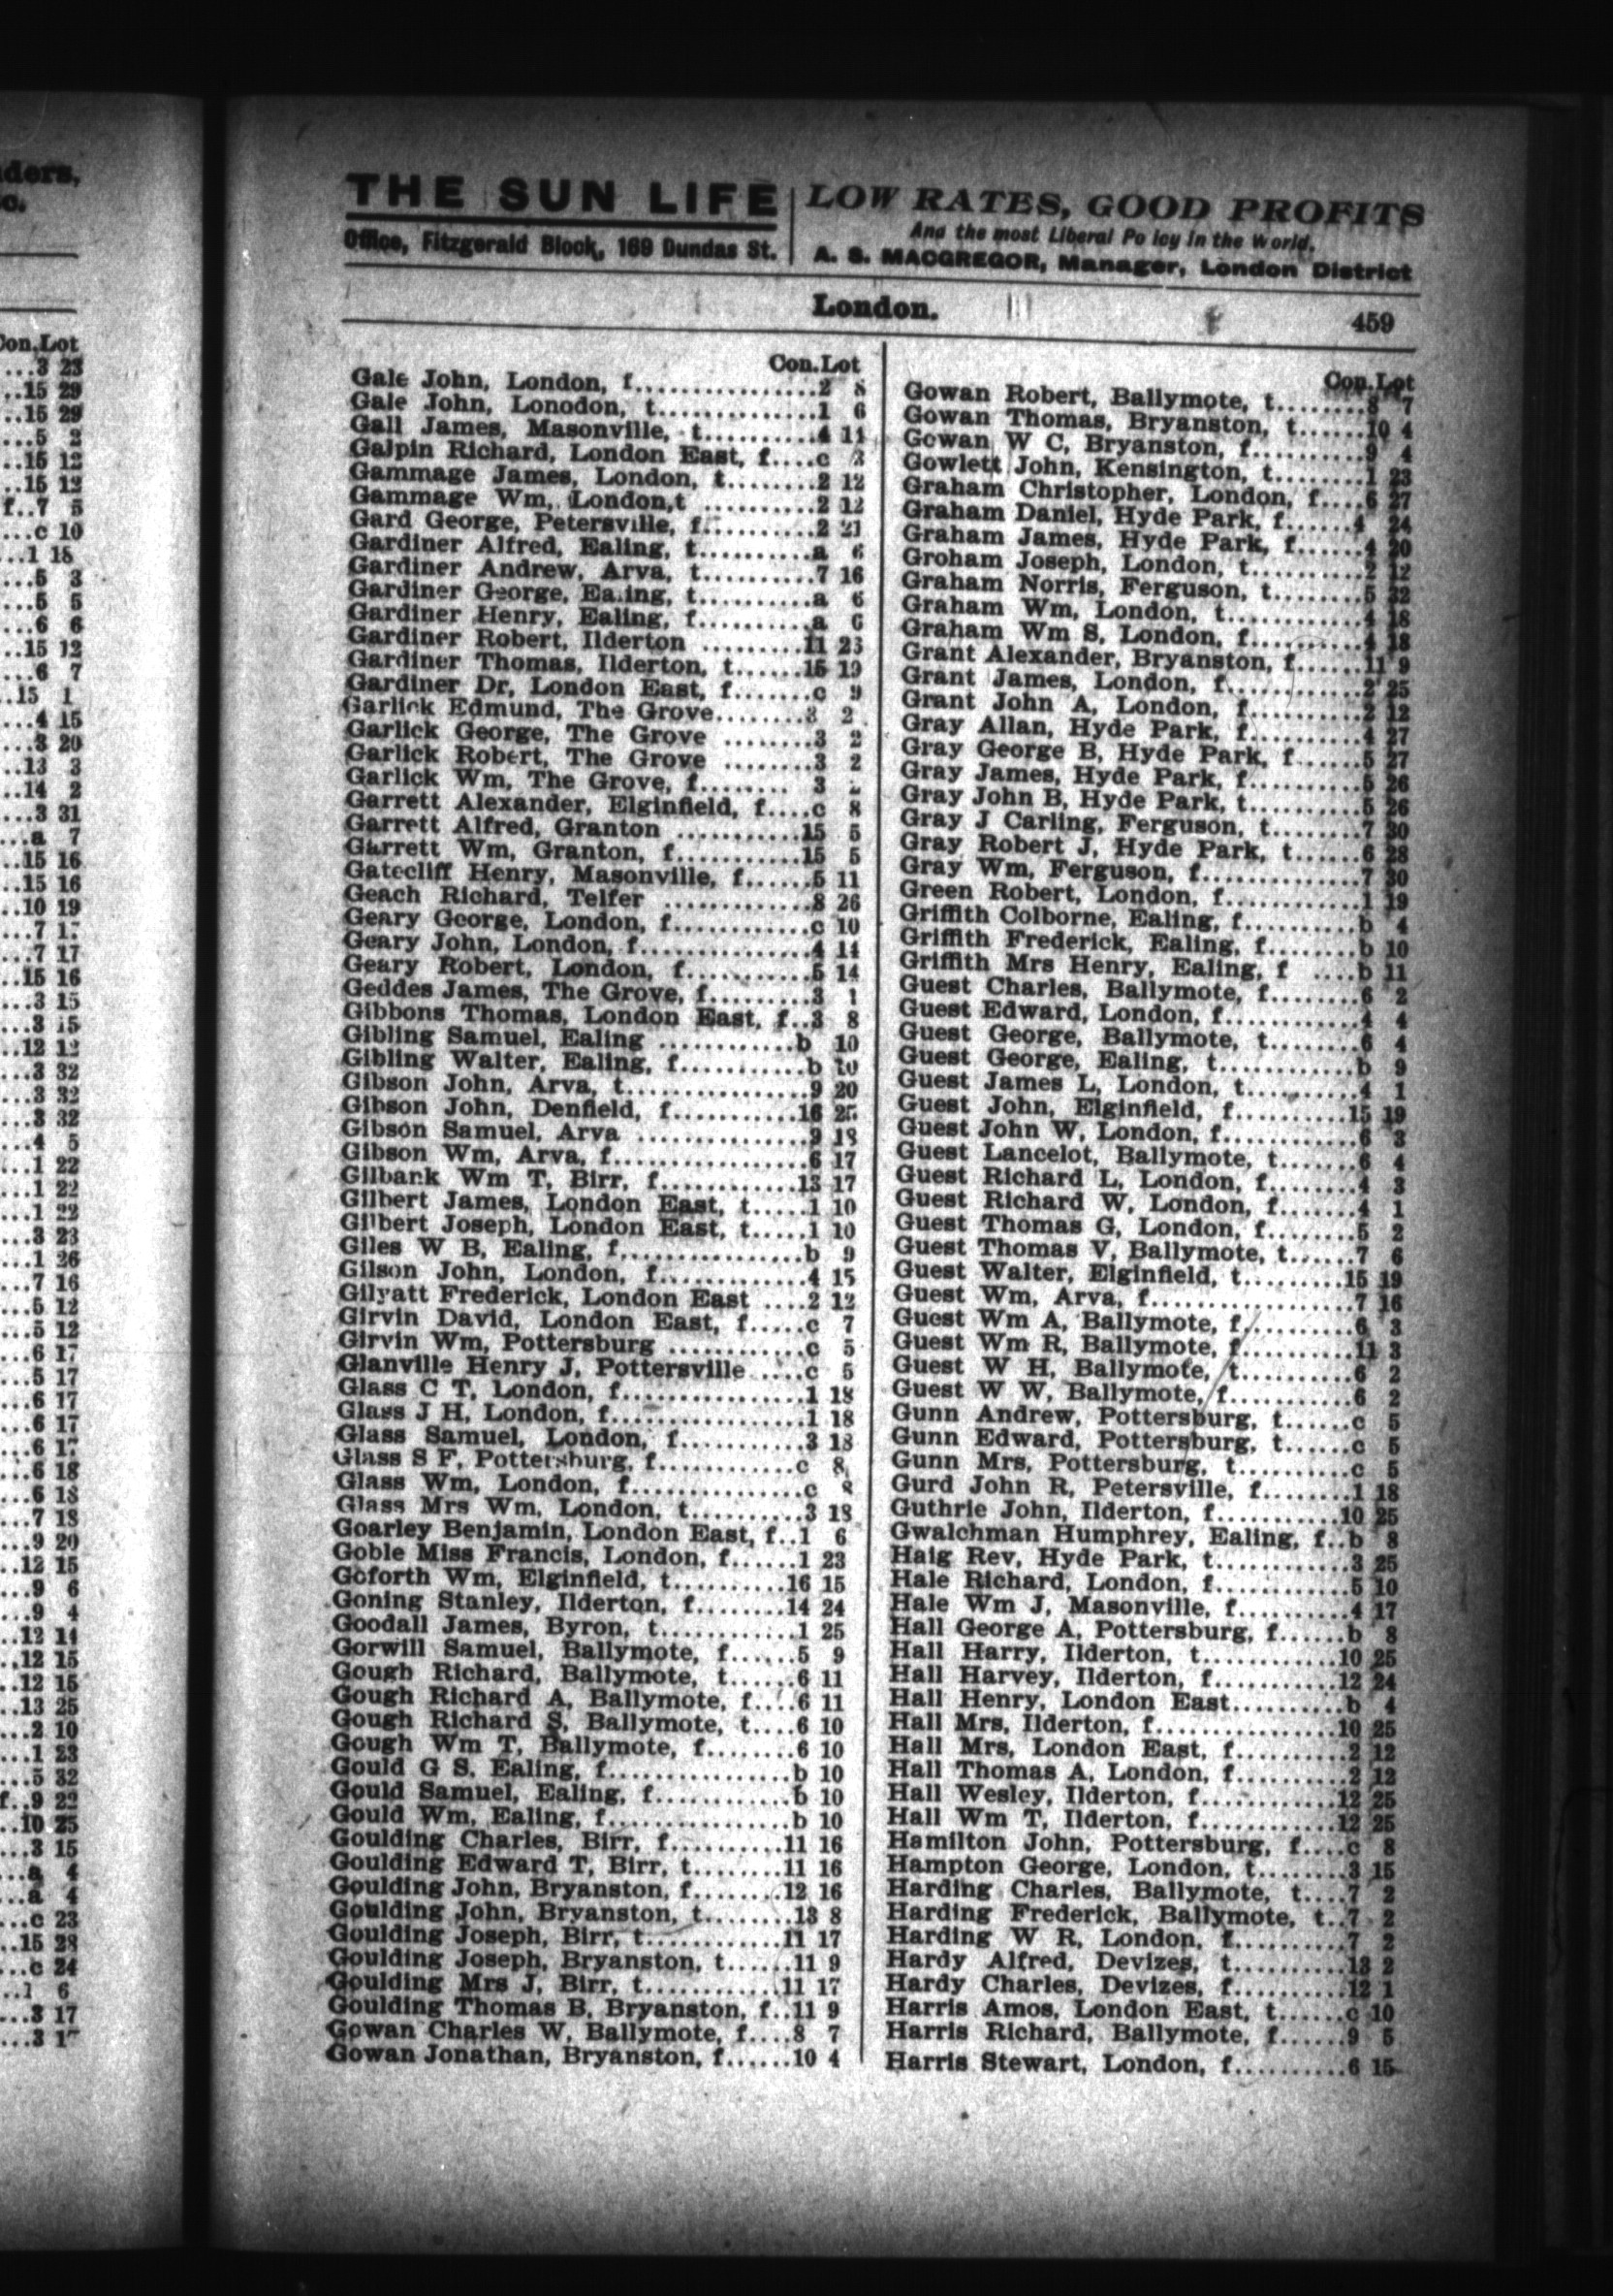 THE SUN LIFE
Office, Fitzgerald Block, 169 Dundas St.
LOW RATES, GOOD PROFITS
And the most Liberal Po icy in the World.
A. S. MACGREGOR, Manager, London District
London.
459
Con.Lot
Gale John, London, f...............2 8
Gale John, Lonodon, t..............1 6
Gall James, Masonville, t..........4 11
Galpin Richard, London East, f....c
Gammage James, London, t.........2 12
Gammage Wm, London,t ...........2 12
Gard George, Petersville, f..........2 21
Gardiner Alfred, Ealing, t..........a 6
Gardiner Andrew, Arva, t..........7 16
Gardiner George, Ea.ing, t..........a 6
Gardiner Henry, Ealing, f..........a 6
Gardiner Robert, Ilderton .........11 23
Gardiner Thomas, Ilderton, t......15 19
Gardiner Dr, London East, f.......c 9
Garlick Edmund, The Grove........3 2
Garlick George, The Grove ........3 2
Garlick Robert, The Grove ........3 2
Garlick Wm, The Grove, f........ 3
Garrett Alexander, Elginfield, f....c 8
Garrett Alfred, Granton ...........15 5
Garrett Wm, Granton, f...........15 5
Gatecliff Henry, Masonville, f......5 11
Geach Richard, Telfer .............8 26
Geary George, London, f............c 10
Geary John, London, f..............4 14
Geary Robert, London, f...........5 14
Geddes James, The Grove, f.........3 1
Gibbons Thomas, London East, f..3 8
Gibling Samuel, Ealing ............b 10
Gibling Walter, Ealing, f...........b 10
Gibson John, Arva, t................9 20
Gibson John, Denfield, f...........16 25
Gibson Samuel, Arva ...............9 18
Gibson Wm, Arva, f.................6 17
Gilbank Wm T, Birr, f.............13 17
Gilbert James, London East, t.....1 10
Gilbert Joseph, London East, t.....1 10
Giles W B, Ealing, f................b 9
Gilson John, London, f.............4 15
Gilyatt Frederick, London East ....2 12
Girvin David, London East, f.....c 7
Girvin Wm, Pottersburg ...........c 5
Glanville Henry J, Pottersville .....c 5
Glass C T, London, f................1 18
Glass J H, London, f................1 18
Glass Samuel, London, f...........3 18
Glass S F, Pottersburg, f............c 8
Glass Wm, London, f...............c 8
Glass Mrs Wm, London, t..........3 18
Goarley Benjamin, London East, f..1 6
Goble Miss Francis, London, f......1 23
Goforth Wm, Elginfield, t..........16 15
Goning Stanley, Ilderton, f........14 24
Goodall James, Byron, t............1 25
Gorwill Samuel, Ballymote, f......5 9
Gough Richard, Ballymote, t......6 11
Gough Richard A, Ballymote, f....6 11
Gough Richard S, Ballymote, t....6 10
Gough Wm T, Ballymote, f........6 10
Gould G S, Ealing, f................b 10
Gould Samuel, Ealing, f............b 10
Gould Wm, Ealing, f................b 10
Goulding Charles, Birr, f..........11 16
Goulding Edward T, Birr, t........11 16
Goulding John, Bryanston, f........12 16
Goulding John, Bryanston, t........13 8
Goulding Joseph, Birr, t............11 17
Goulding Joseph, Bryanston, t......11 9
Goulding Mrs J, Birr, t............11 17
Goulding Thomas B, Bryanston, f..11 9
Gowan Charles W, Ballymote, f....8 7
Gowan Jonathan, Bryanston, f......10 4
Con.Lot
Gowan Robert, Ballymote, t........8 7
Gowan Thomas, Bryanston, t......10 4
Gowan W C, Bryanston, f..........9 4
Gowlett John, Kensington, t........1 23
Graham Christopher, London, f....6 27
Graham Daniel, Hyde Park, f......4 24
Graham James, Hyde Park, f......4 20
Groham Joseph, London, t..........2 12
Graham Norris, Ferguson, t........5 32
Graham Wm, London, t............4 18
Graham Wm S, London, f..........4 18
Grant Alexander, Bryanston, f......11 9
Grant James, London, f............2 25
Grant John A, London, f..........2 12
Gray Allan, Hyde Park, f..........4 27
Gray George B, Hyde Park, f......5 27
Gray James, Hyde Park, f..........5 26
Gray John B, Hyde Park, t..........5 26
Gray J Carling, Ferguson, t........7 30
Gray Robert J, Hyde Park, t......6 28
Gray Wm, Ferguson, f..............7 30
Green Robert, London, f............1 19
Griffith Colborne, Ealing, f..........b 4
Griffith Frederick, Ealing, f........b 10
Griffith Mrs Henry, Ealing, f ....b 11
Guest Charles, Ballymote, f........6 2
Guest Edward, London, f............4 4
Guest George, Ballymote, t........6 4
Guest George, Ealing, t............b 9
Guest James L, London, t..........4 1
Guest John, Elginfield, f..........15 19
Guest John W, London, f............6 3
Guest Lancelot, Ballymote, t.......6 4
Guest Richard L, London, f........4 3
Guest Richard W, London, f.......4 1
Guest Thomas G, London, f........5 2
Guest Thomas V, Ballymote, t......7 6
Guest Walter, Elginfield, t.........15 19
Guest Wm, Arva, f..................7 16
Guest Wm A, Ballymote, f..........6 3
Guest Wm R, Ballymote, f..........11 3
Guest W H, Ballymote, t..........6 2
Guest W W, Ballymote, f..........6 2
Gunn Andrew, Pottersburg, t......c 5
Gunn Edward, Pottersburg, t......c 5
Gunn Mrs, Pottersburg, t..........c 5
Gurd John R, Petersville, f........1 18
Guthrie John, Ilderton, f..........10 25
Gwalchman Humphrey, Ealing, f..b 8
Haig Rev, Hyde Park, t............3 25
Hale Richard, London, f............5 10
Hale Wm J, Masonville, f..........4 17
Hall George A, Pottersburg, f......b 8
Hall Harry, Ilderton, t............10 25
Hall Harvey, Ilderton, f...........12 24
Hall Henry, London East..........b 4
Hall Mrs, Ilderton, f................10 25
Hall Mrs, London East, f..........2 12
Hall Thomas A, London, f..........2 12
Hall Wesley, Ilderton, f............12 25
Hall Wm T, Ilderton, f............12 25
Hamilton John, Pottersburg, f....c 8
Hampton George, London, t........3 15
Harding Charles, Ballymote, t....7 2
Harding Frederick, Ballymote, t..7 2
Harding W R, London, f..........7 2
Hardy Alfred, Devizes, t..........13 2
Hardy Charles, Devizes, f..........12 1
Harris Amos, London East, t......c 10
Harris Richard, Ballymote, f......9 5
Harris Stewart, London, f..........6 15